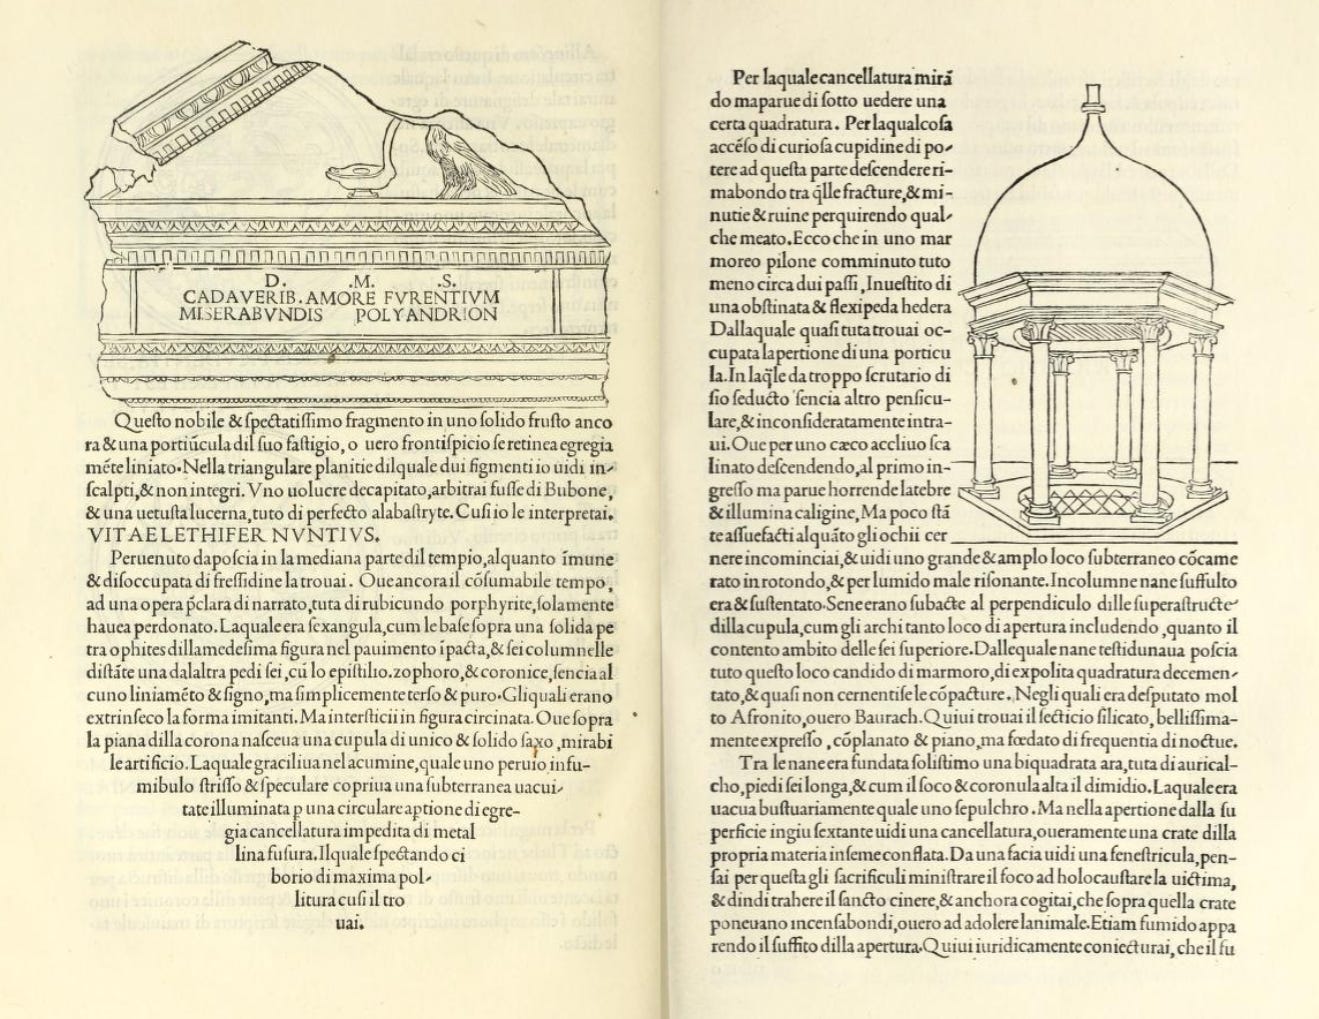 D. .M. .S.
CADAVERIB. AMORE FVRENTIVM
MISERABVNDIS POLYANDRION
Queſto nobile & ſpectatiſſimo fragmento in uno ſolido fruſto anco
ra & una portiũcula dil ſuo faſtigio, o uero frontiſpicio ſe retinea egregia
mẽte liniato. Nella triangulare planitie dilquale dui figmenti io uidi in-
ſcalpti, & non integri. Vno uolucre decapitato, arbitrai fuſſe di Bubone,
& una uetuſta lucerna, tuto di perfecto alabaſtryte. Cuſi io le interpretai.
VITAE LETHIFER NVNTIVS.
Peruenuto dapoſcia in la mediana parte dil tempio, alquanto ĩmune
& diſoccupata di freſſidine la trouai. Oue ancora il cõſumabile tempo,
ad una opera p̃clara di narrato, tuta di rubicundo porphyrite, ſolamente
hauea perdonato. Laquale era ſexangula, cum le baſe ſopra una ſolida pe
tra ophites dillamedeſima figura nel pauimento ĩpacta, & ſei columnelle
diſtãte una dalaltra pedi ſei, cũ lo epiſtilio. zophoro, & coronice, ſencia al
cuno liniamẽto & ſigno, ma ſimplicemente terſo & puro. Gli quali erano
extrinſeco la forma imitanti. Ma interſticii in figura circinata. Oue ſopra
la piana dilla corona naſceua una cupula di unico & ſolido ſaxo, mirabi
le artificio. Laquale graciliua nel acumine, quale uno peruio infu-
mibulo ſtriſſo & ſpeculare copriua una ſubterranea uacui-
tate illuminata p una circulare aptione di egre-
gia cancellatura impedita di metal
lina fuſura. Ilquale ſpectando ci
borio di maxima pol-
litura cuſi il tro
uai.
Per laquale cancellatura mirã
do ma parue di ſotto uedere una
certa quadratura. Per laqualcoſa
accẽſo di curioſa cupidine di po-
tere ad queſta parte deſcendere ri-
mabondo tra q̃lle fracture, & mi-
nutie & ruine perquirendo qual-
che meato. Ecco che in uno mar
moreo pilone comminuto tuto
meno circa dui paſſi, Inueſtito di
una obſtinata & flexipeda hedera
Dallaquale quaſi tuta trouai oc-
cupata la pertione di una porticu
la. In laq̃le da troppo ſcrutario di
ſio ſeducto ſencia altro penſicu-
lare, & inconſideratamente intra-
ui. Oue per uno cæco accliuo ſca
linato deſcendendo, al primo in-
greſſo ma parue horrende latebre
& illumina caligine, Ma poco ſtã
te aſſuefacti alquãto gli ochii cer
nere incominciai, & uidi uno grande & amplo loco ſubterraneo cõcame
rato in rotondo, & per lumido male riſonante. Incolumne nane ſuffulto
era & ſuſtentato. Sene erano ſubacte al perpendiculo dille ſuperaſtructe
dilla cupula, cum gli archi tanto loco di apertura includendo, quanto il
contento ambito delle ſei ſuperiore. Dallequale nane teſtidunaua poſcia
tuto queſto loco candido di marmoro, di expolita quadratura decemen-
tato, & quaſi non cernentiſe le cõpacture. Negli quali era deſputato mol
to Afronito, ouero Baurach. Quiui trouai il ſecticio ſilicato, belliſſima-
mente expreſſo, cõplanato & piano, ma fœdato di frequentia di noctue.
Tra le nane era fundata ſoliſtimo una biquadrata ara, tuta di aurical-
cho, piedi ſei longa, & cum il ſoco & coronula alta il dimidio. Laquale era
uacua buſtuariamente quale uno ſepulchro. Ma nella apertione dalla ſu
perficie ingiu ſextante uidi una cancellatura, oueramente una crate dilla
propria materia inſeme conflata. Da una facia uidi una feneſtricula, pen-
ſai per queſta gli ſacrificuli miniſtrare il foco ad holocauſtare la uictima,
& dindi trahere il ſancto cinere, & anchora cogitai, che ſopra quella crate
poneuano incenſabondi, ouero ad adolere lanimale. Etiam fumido appa
rendo il ſuffito dilla apertura. Quiui iuridicamente coniecturai, che il fu